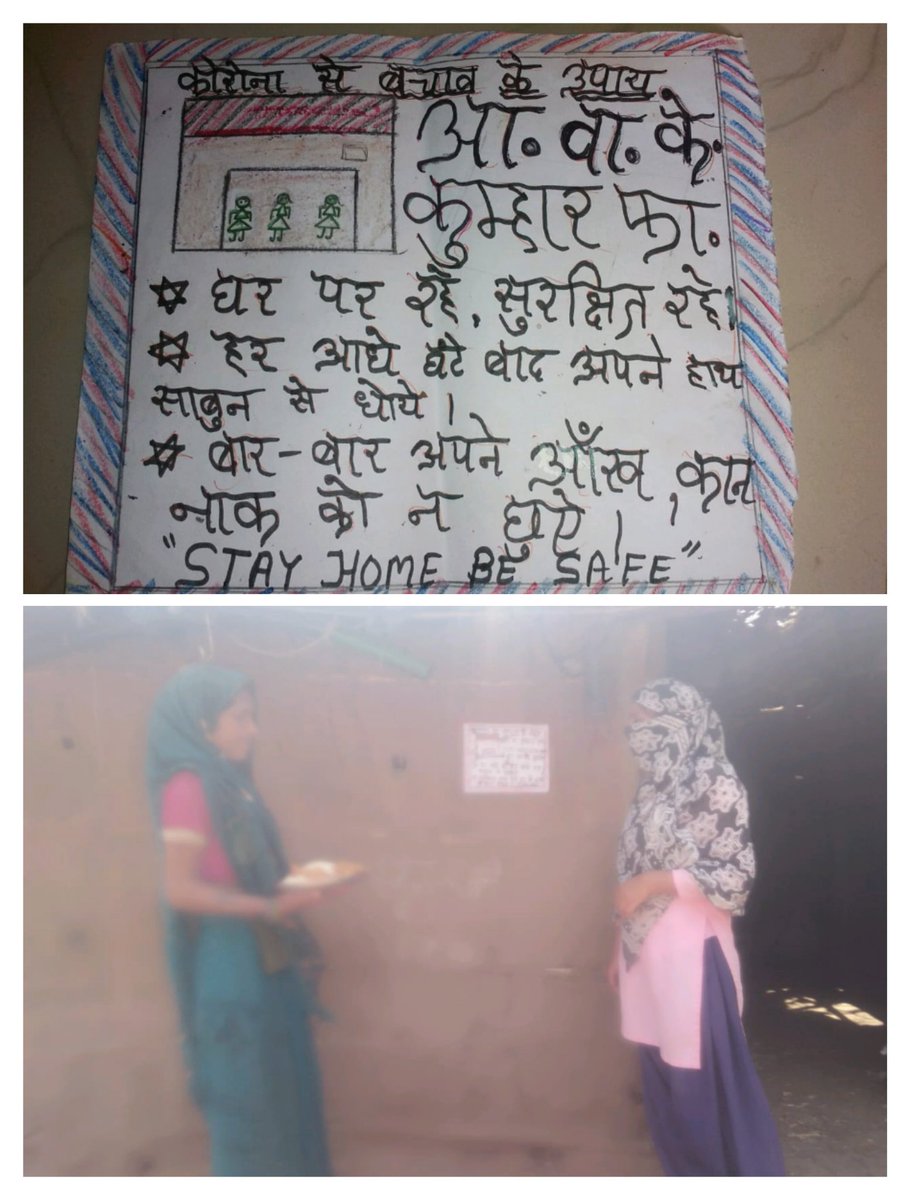 कोरोना से बचाव के उपाय
आ. वा. के.
कुम्हार फा.
☆ घर पर रहें, सुरक्षित रहे।
☆ हर आधे घंटे बाद अपने हाथ
साबुन से धोये।
☆ बार-बार अपने आँख, कान
नाक को न छुऐ।
"STAY HOME BE SAFE"